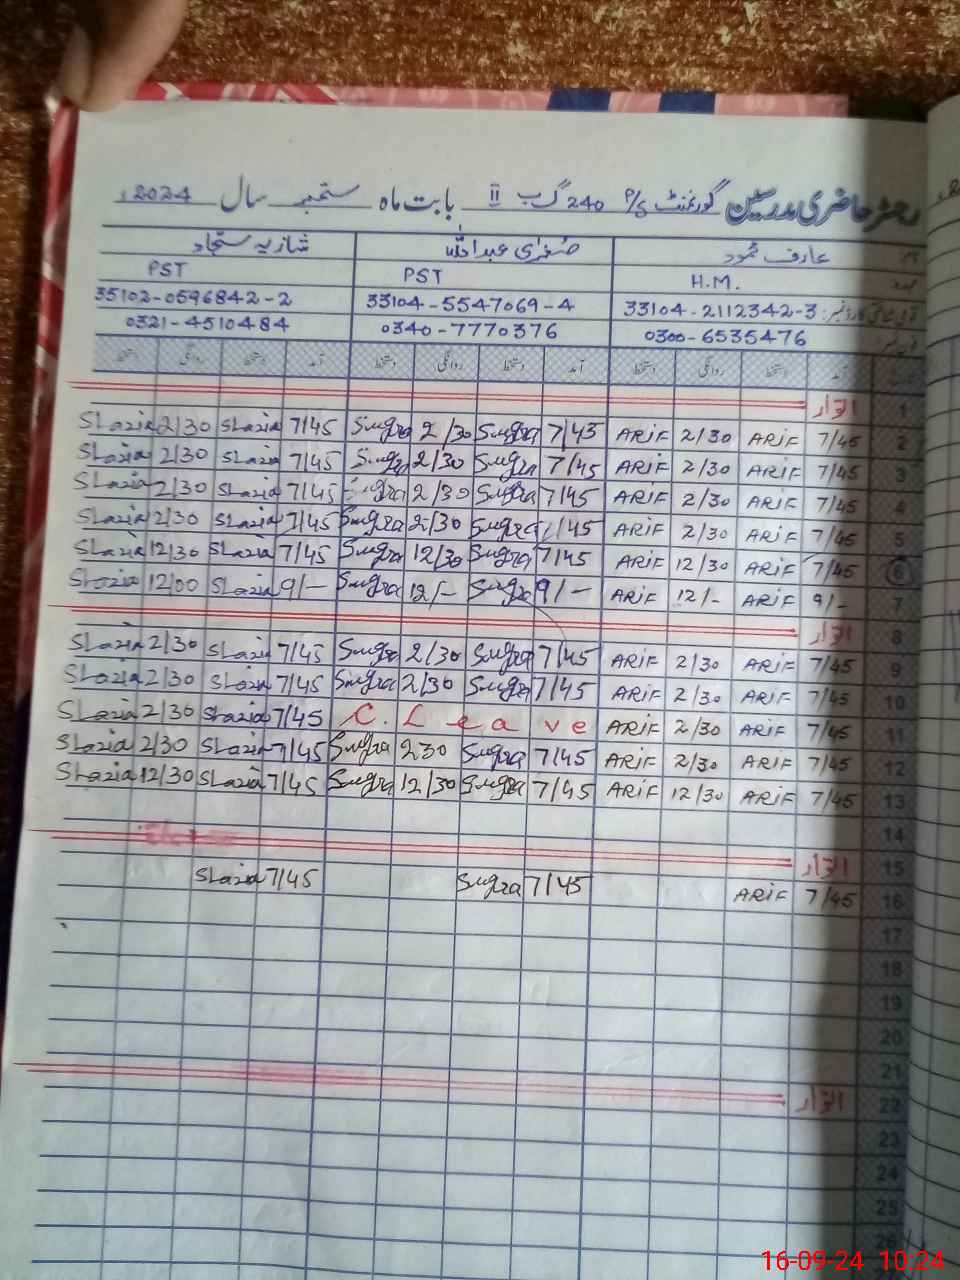 رجسٹر حاضری مدرسین گورنمنٹ P/S 240 گ ب II بابت ماہ ستمبر سال 2024ء
عارف محمود صغریٰ عبداللہ شازیہ سجاد
H.M. PST PST
33104-2112342-3 33104-5547069-4 35102-0596842-2
0300-6535476 0340-7770376 0321-4510484
آمد دستخط روانگی دستخط آمد دستخط روانگی دستخط آمد دستخط روانگی دستخط
1 اتوار
2 7/45 ARIF 2/30 ARIF 7/45 Sugra 2/30 Sugra 7/45 SLazia 2/30 SLazia
3 7/45 ARIF 2/30 ARIF 7/45 Sugra 2/30 Sugra 7/45 SLazia 2/30 SLazia
4 7/45 ARIF 2/30 ARIF 7/45 Sugra 2/30 Sugra 7/45 SLazia 2/30 SLazia
5 7/45 ARIF 2/30 ARIF 7/45 Sugra 2/30 Sugra 7/45 SLazia 2/30 SLazia
6 7/45 ARIF 12/30 ARIF 7/45 Sugra 12/30 Sugra 7/45 SLazia 12/30 SLazia
7 9/- ARIF 12/- ARIF 9/- Sugra 12/- Sugra 9/- SLazia 12/00 SLazia
8 اتوار
9 7/45 ARIF 2/30 ARIF 7/45 Sugra 2/30 Sugra 7/45 SLazia 2/30 SLazia
10 7/45 ARIF 2/30 ARIF 7/45 Sugra 2/30 Sugra 7/45 SLazia 2/30 SLazia
11 7/45 ARIF 2/30 ARIF C. Leave 7/45 SLazia 2/30 SLazia
12 7/45 ARIF 2/30 ARIF 7/45 Sugra 230 Sugra 7/45 SLazia 2/30 SLazia
13 7/45 ARIF 12/30 ARIF 7/45 Sugra 12/30 Sugra 7/45 SLazia 12/30 SLazia
14
15 اتوار
16 7/45 ARIF 7/45 Sugra 7/45 SLazia
17
18
19
20
21
22 اتوار
23
24
25
26
16-09-24 10:24